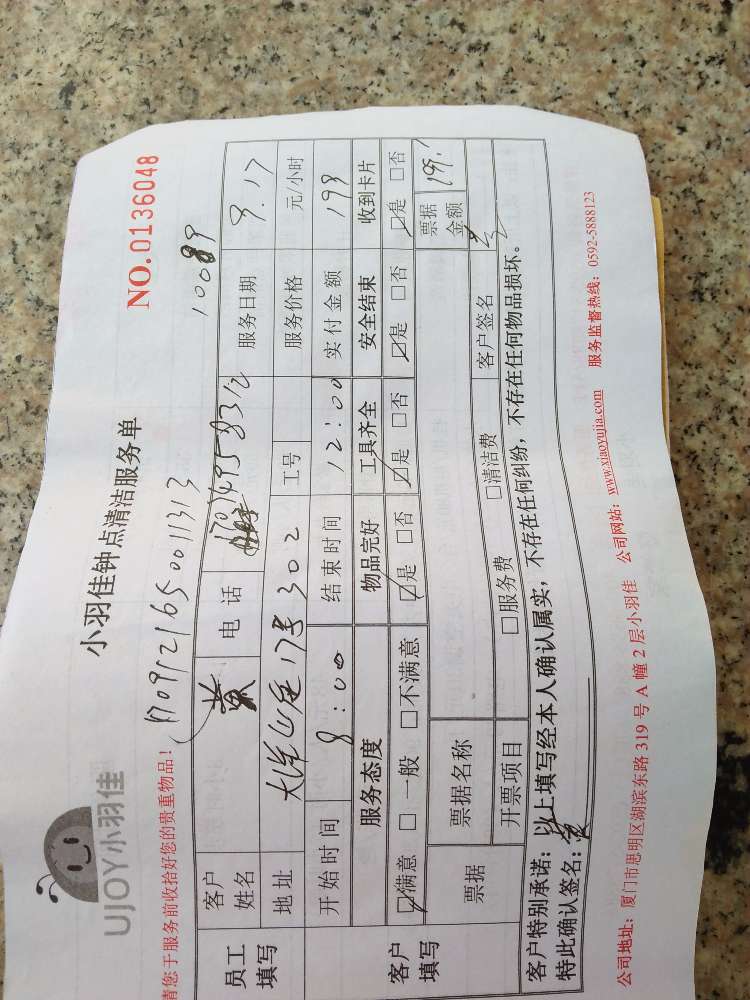 UJOY小羽佳
小羽佳钟点清洁服务单
NO.0136048
请您于服务前收拾好您的贵重物品！
10089
员工填写
客户姓名 黄 电话 服务日期 9.17
地址 17号302 工号 服务价格 元/小时
开始时间 8:00 结束时间 12:00 实付金额 198
客户填写
服务态度 物品完好 工具齐全 安全结束 收到卡片
☑满意 □一般 □不满意 ☑是 □否 ☑是 □否 ☑是 □否 ☑是 □否
票据 票据名称 票据金额
开票项目 □服务费 □清洁费 客户签名
客户特别承诺：以上填写经本人确认属实，不存在任何纠纷，不存在任何物品损坏。
特此确认签名：
公司地址：厦门市思明区湖滨东路 319 号 A 幢 2 层小羽佳 公司网站：www.xiaoyujia.com 服务监督热线：0592-5888123